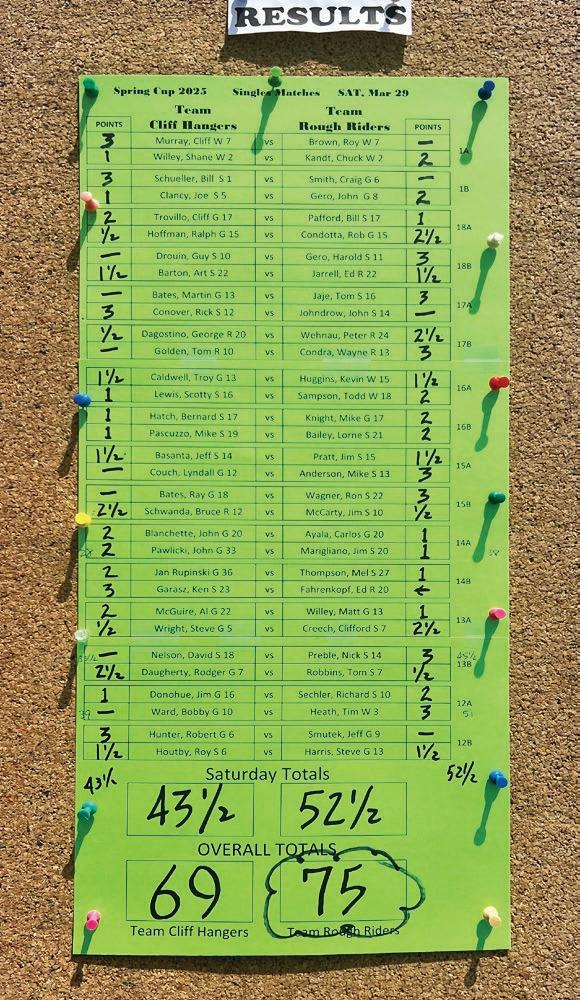 RESULTS
Spring Cup 2025 Singles Matches SAT, Mar 29
Team Team
POINTS Cliff Hangers Rough Riders POINTS
3 Murray, Cliff W 7 vs Brown, Roy W 7 —
1 Willey, Shane W 2 vs Kandt, Chuck W 2 2
1A
3 Schueller, Bill S 1 vs Smith, Craig G 6 —
1 Clancy, Joe S 5 vs Gero, John G 8 2
1B
2 Trovillo, Cliff G 17 vs Pafford, Bill S 17 1
1/2 Hoffman, Ralph G 15 vs Condotta, Rob G 15 2 1/2
18A
— Drouin, Guy S 10 vs Gero, Harold S 11 3
1 1/2 Barton, Art S 22 vs Jarrell, Ed R 22 1 1/2
18B
— Bates, Martin G 13 vs Jaje, Tom S 16 3
3 Conover, Rick S 12 vs Johndrow, John S 14 —
17A
1/2 Dagostino, George R 20 vs Wehnau, Peter R 24 2 1/2
— Golden, Tom R 10 vs Condra, Wayne R 13 3
17B
1 1/2 Caldwell, Troy G 13 vs Huggins, Kevin W 15 1 1/2
1 Lewis, Scotty S 16 vs Sampson, Todd W 18 2
16A
1 Hatch, Bernard S 17 vs Knight, Mike G 17 2
1 Pascuzzo, Mike S 19 vs Bailey, Lorne S 21 2
16B
1 1/2 Basanta, Jeff S 14 vs Pratt, Jim S 15 1 1/2
— Couch, Lyndall G 12 vs Anderson, Mike S 13 3
15A
— Bates, Ray G 18 vs Wagner, Ron S 22 3
2 1/2 Schwanda, Bruce R 12 vs McCarty, Jim S 10 1/2
15B
2 Blanchette, John G 20 vs Ayala, Carlos G 20 1
2 Pawlicki, John G 33 vs Marigliano, Jim S 20 1
14A
2 Jan Rupinski G 36 vs Thompson, Mel S 27 1
3 Garasz, Ken S 23 vs Fahrenkopf, Ed R 20 —
14B
2 McGuire, Al G 22 vs Willey, Matt G 13 1
1/2 Wright, Steve G 5 vs Creech, Clifford S 7 2 1/2
13A
— Nelson, David S 18 vs Preble, Nick S 14 3
2 1/2 Daugherty, Rodger G 7 vs Robbins, Tom S 7 1/2
13B
1 Donohue, Jim G 16 vs Sechler, Richard S 10 2
— Ward, Bobby G 10 vs Heath, Tim W 3 3
12A
3 Hunter, Robert G 6 vs Smutek, Jeff G 9 —
1 1/2 Houtby, Roy S 6 vs Harris, Steve G 13 1 1/2
12B
43 1/2 Saturday Totals 52 1/2
43 1/2 52 1/2
OVERALL TOTALS
69 75
Team Cliff Hangers Team Rough Riders